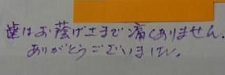 歯はお蔭げさまで痛くありません.
ありがとうございました.